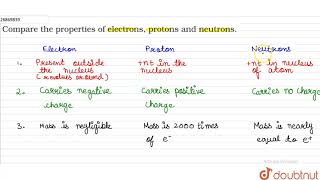 26865833
Compare the properties of electrons, protons and neutrons.
Electron Proton Neutrons
1. Present outside the nucleus (revolves around) +nt in the nucleus +nt in nucleus of atom
2. Carries negative charge Carries positive charge Carries no charge
3. Mass is negligible Mass is 2000 times of e⁻ Mass is nearly equal to e⁺
doubtnut